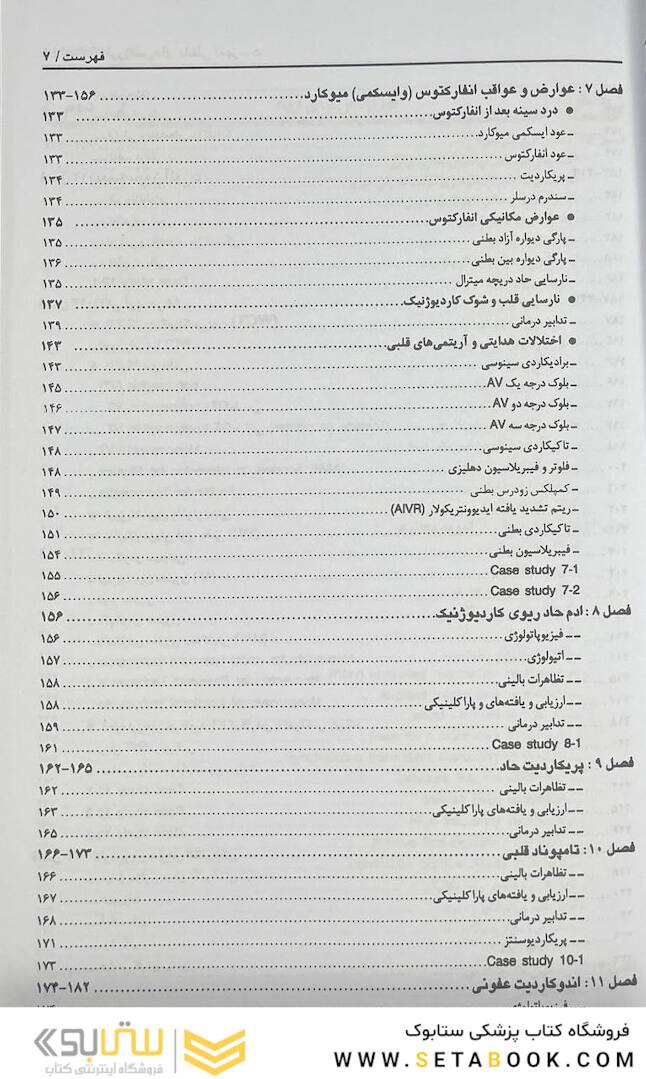 فهرست / ۷
فصل ۷ : عوارض و عواقب انفارکتوس (وایسکمی) میوکارد ........ ۱۳۳-۱۵۶
● درد سینه بعد از انفارکتوس ........ ۱۳۳
ـ عود ایسکمی میوکارد ........ ۱۳۳
ـ عود انفارکتوس ........ ۱۳۳
ـ پریکاردیت ........ ۱۳۴
ـ سندرم درسلر ........ ۱۳۴
● عوارض مکانیکی انفارکتوس ........ ۱۳۵
ـ پارگی دیواره آزاد بطنی ........ ۱۳۵
ـ پارگی دیواره بین بطنی ........ ۱۳۶
ـ نارسایی حاد دریچه میترال ........ ۱۳۵
● نارسایی قلب و شوک کاردیوژنیک ........ ۱۳۷
ـ تدابیر درمانی ........ ۱۳۹
● اختلالات هدایتی و آریتمی‌های قلبی ........ ۱۴۳
ـ برادیکاردی سینوسی ........ ۱۴۳
ـ بلوک درجه یک AV ........ ۱۴۵
ـ بلوک درجه دو AV ........ ۱۴۶
ـ بلوک درجه سه AV ........ ۱۴۷
ـ تاکیکاردی سینوسی ........ ۱۴۸
ـ فلوتر و فیبریلاسیون دهلیزی ........ ۱۴۸
ـ کمپلکس زودرس بطنی ........ ۱۴۹
ـ ریتم تشدید یافته ایدیوونتریکولار (AIVR) ........ ۱۵۰
ـ تاکیکاردی بطنی ........ ۱۵۱
ـ فیبریلاسیون بطنی ........ ۱۵۴
Case study 7-1 ........ ۱۵۵
Case study 7-2 ........ ۱۵۶
فصل ۸ : ادم حاد ریوی کاردیوژنیک ........ ۱۵۶
ــ فیزیوپاتولوژی ........ ۱۵۶
ــ اتیولوژی ........ ۱۵۷
ــ تظاهرات بالینی ........ ۱۵۸
ــ ارزیابی و یافته‌های و پاراکلینیکی ........ ۱۵۸
ــ تدابیر درمانی ........ ۱۵۹
Case study 8-1 ........ ۱۶۱
فصل ۹ : پریکاردیت حاد ........ ۱۶۲-۱۶۵
ــ تظاهرات بالینی ........ ۱۶۲
ــ ارزیابی و یافته‌های پاراکلینیکی ........ ۱۶۳
ــ تدابیر درمانی ........ ۱۶۵
فصل ۱۰ : تامپوناد قلبی ........ ۱۶۶-۱۷۳
ــ تظاهرات بالینی ........ ۱۶۶
ــ ارزیابی و یافته‌های پاراکلینیکی ........ ۱۶۷
ــ تدابیر درمانی ........ ۱۶۸
ــ پریکاردیوسنتز ........ ۱۷۱
Case study 10-1 ........ ۱۷۳
فصل ۱۱ : اندوکاردیت عفونی ........ ۱۷۴-۱۸۲
فروشگاه کتاب پزشکی ستابوک
WWW.SETABOOK.COM
ستابوک
فروشگاه اینترنتی کتاب